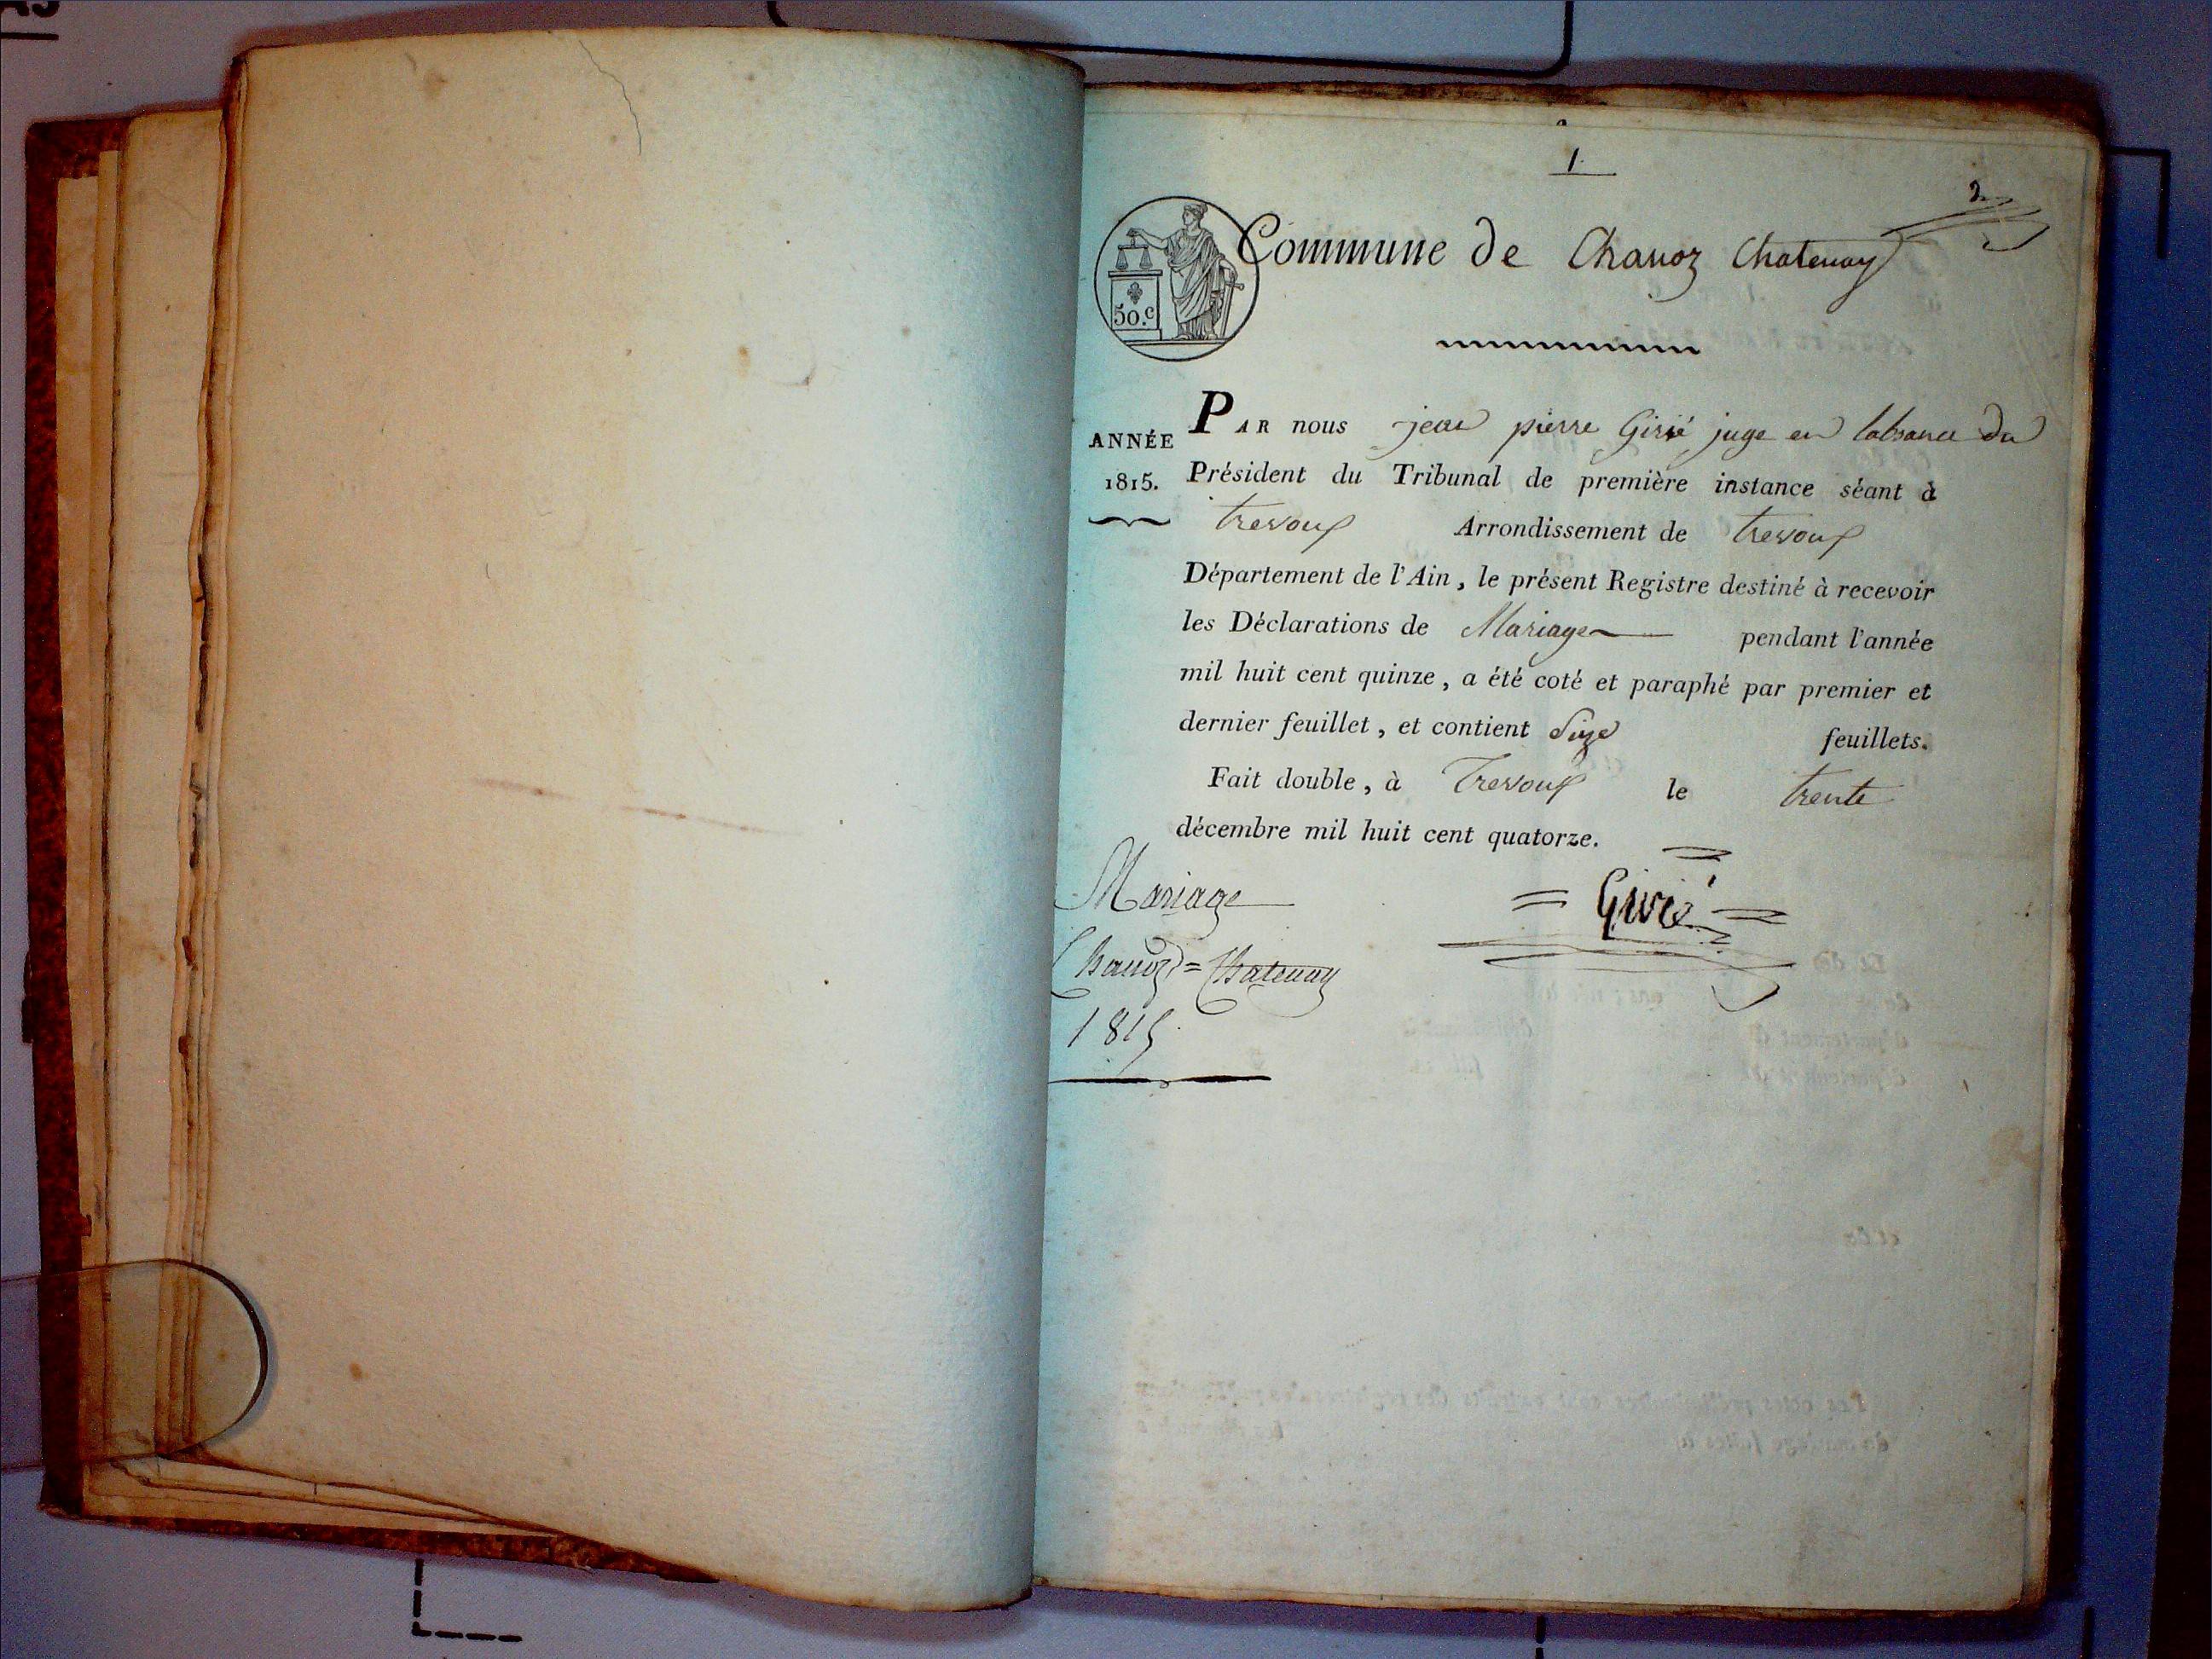 1
2
Commune de Chanoz Chatenay
50.c
ANNÉE
1815.
PAR nous jean pierre Givré juge en labsance du
Président du Tribunal de première instance séant à
trevoux Arrondissement de trevoux
Département de l'Ain, le présent Registre destiné à recevoir
les Déclarations de Mariage pendant l'année
mil huit cent quinze, a été coté et paraphé par premier et
dernier feuillet, et contient feuillets.
Fait double, à Trevoux le trente
décembre mil huit cent quatorze.
Givré
Mariage
Chanoz = Chatenay
1815